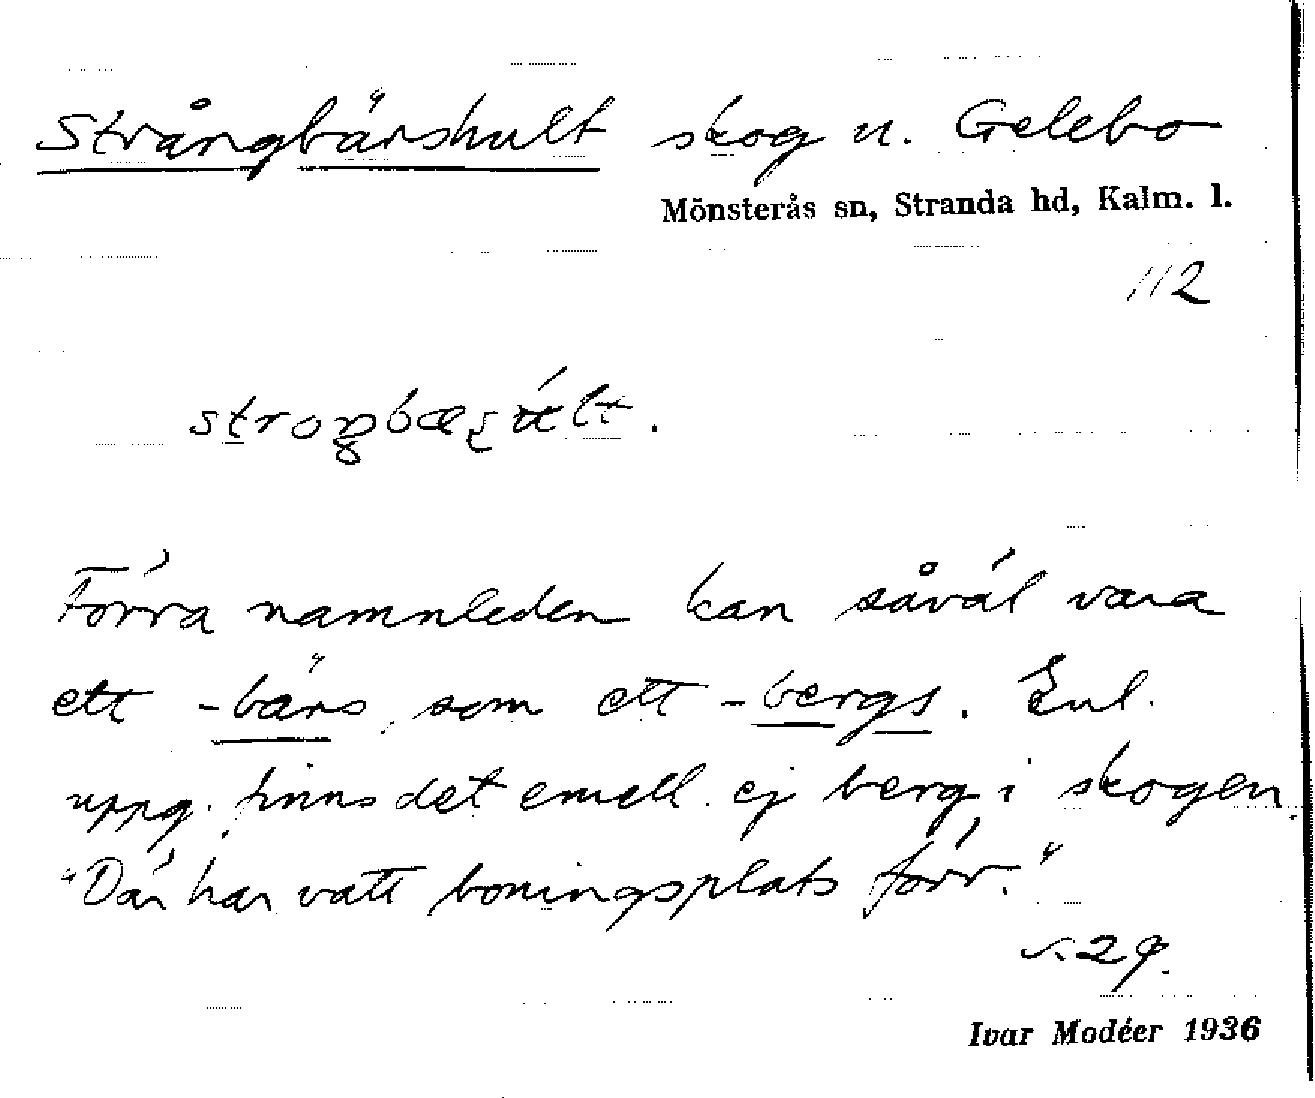 Strångbärshult skog u. Gelebo
Mönsterås sn, Stranda hd, Kalm. l.
112
Förra namnleden kan såväl vara
ett -bärs, som ett -bergs. Enl.
uppg. finns det emell. ej berg i skogen.
"Där har vatt boningsplats förr."
s. 29.
Ivar Modéer 1936